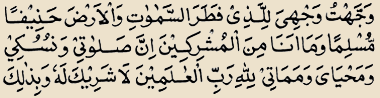 وَجَّهْتُ وَجْهِيَ لِلَّذِىْ فَطَرَ السَّمٰوٰتِ وَالْاَرْضَ حَنِيْفًا
مُسْلِمًا وَمَا اَنَا مِنَ الْمُشْرِكِيْنَ اِنَّ صَلَوٰتِيْ وَنُسُكِيْ
وَمَحْيَايَ وَمَمَاتِيْ لِلّٰهِ رَبِّ الْعٰلَمِيْنَ لَا شَرِيْكَ لَهٗ وَبِذٰلِكَ